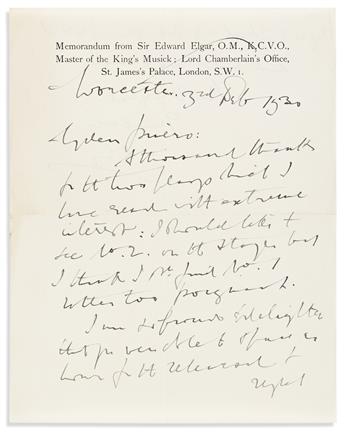 Memorandum from Sir Edward Elgar, O.M., K.C.V.O.,
Master of the King's Musick; Lord Chamberlain's Office,
St. James's Palace, London, S.W. 1.
Worcester. 3rd Feb 1930
My dear
A thousand thanks
for the two plays that I
have read with extreme
interest: I should like to
see No. 2. on the stage but
I think I shd. find No. 1
rather too poignant.
I am so profoundly delighted
that you were able to spare an
hour for the rehearsal &